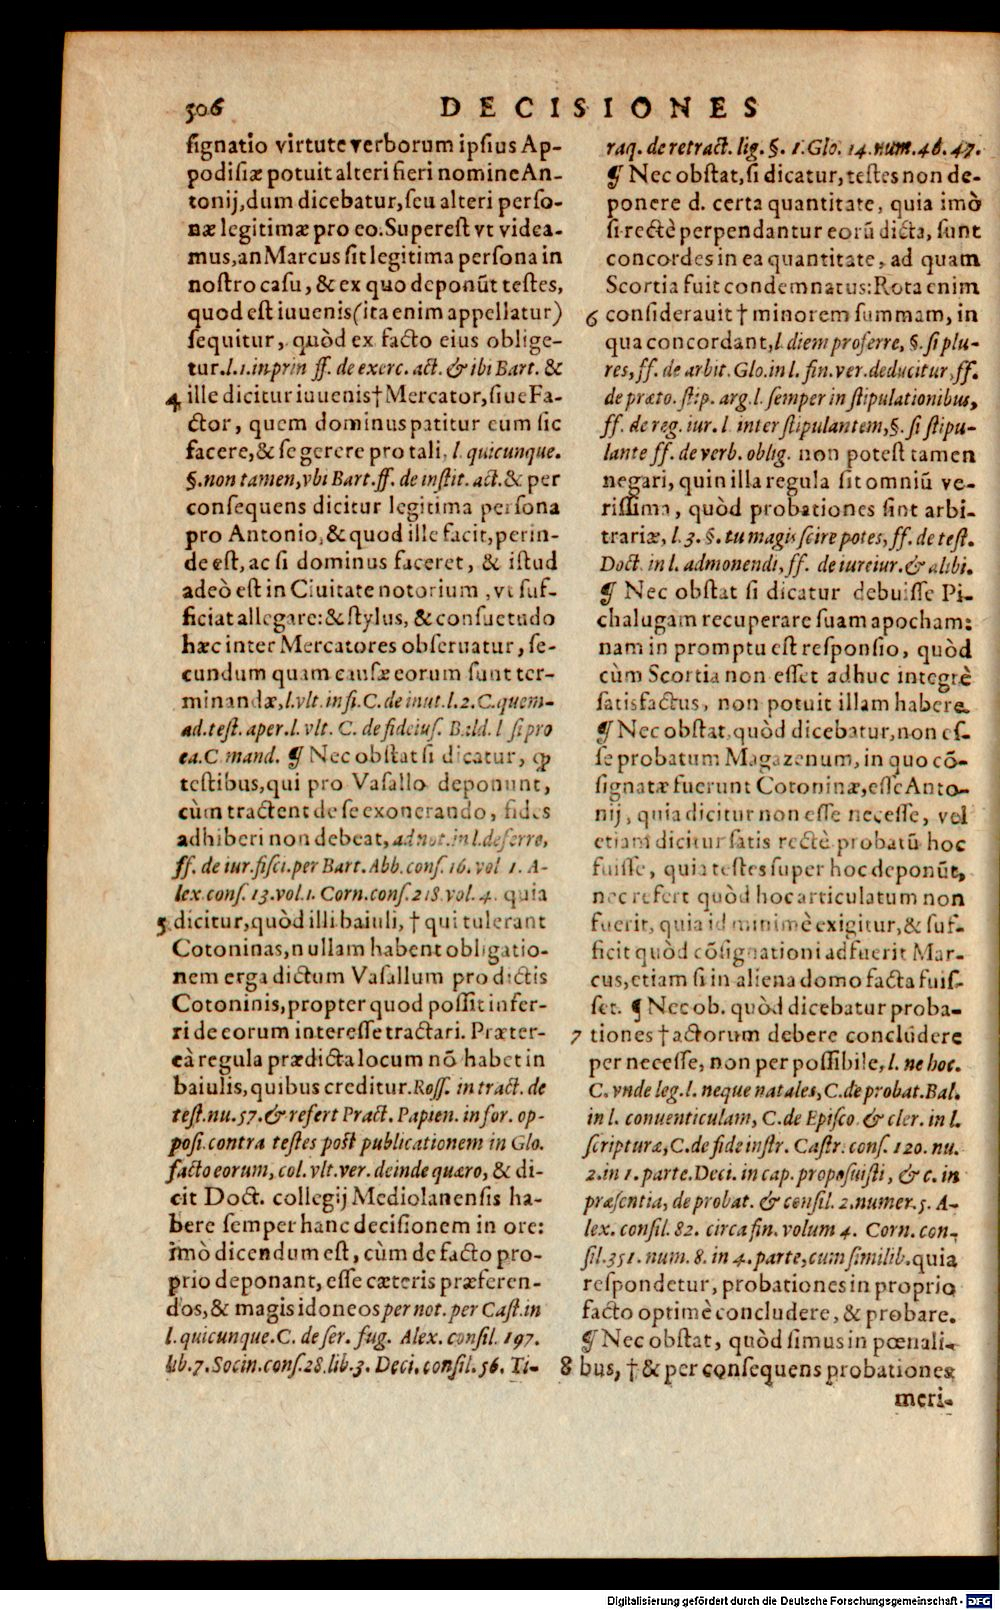 306
DECISIONES
signatio virtute verborum ipsius Ap-
podisiæ potuit alteri fieri nomine An-
tonij, dum dicebatur, seu alteri perso-
næ legitimæ pro eo. Superest vt videa-
mus, an Marcus sit legitima persona in
nostro casu, & ex quo deponūt testes,
quod est iuuenis (ita enim appellatur)
sequitur, quòd ex facto eius oblige-
tur. l. 1. in prin ff. de exerc. act. & ibi Bart. &
4 ille dicitur iuuenis † Mercator, siue Fa-
ctor, quem dominus patitur eum sic
facere, & se gerere pro tali, l. quicunque.
§. non tamen, vbi Bart. ff. de instit. act. & per
consequens dicitur legitima persona
pro Antonio, & quod ille facit, perin-
de est, ac si dominus faceret, & istud
adeò est in Ciuitate notorium, vt suf-
ficiat allegare: & stylus, & consuetudo
hæc inter Mercatores obseruatur, se-
cundum quam causæ eorum sunt ter-
minandæ, l. vlt. in fi. C. de inut. l. 2. C. quem-
ad. test. aper. l. vlt. C. de fideius. Bald. l si pro
ea. C. mand. ¶ Nec obstat si dicatur, ꝙ
testibus, qui pro Vasallo deponunt,
cùm tractent de se exonerando, fides
adhiberi non debeat, ad not. in l. deferre,
ff. de iur. fisci. per Bart. Abb. cons. 16. vol 1. A-
lex. cons. 13. vol. 1. Corn. cons. 218. vol. 4. quia
5 dicitur, quòd illi baiuli, † qui tulerant
Cotoninas, nullam habent obligatio-
nem erga dictum Vasallum pro dictis
Cotoninis, propter quod possit infer-
ri de eorum interesse tractari. Præter-
eà regula prædicta locum nō habet in
baiulis, quibus creditur. Ross. in tract. de
test. nu. 57. & refert Pract. Papien. in for. op-
posi. contra testes post publicationem in Glo.
facto eorum, col. vlt. ver. deinde quæro, & di-
cit Doct. collegij Mediolanensis ha-
bere semper hanc decisionem in ore:
imò dicendum est, cùm de facto pro-
prio deponant, esse cæteris præferen-
dos, & magis idoneos per not. per Cast. in
l. quicunque. C. de ser. fug. Alex. consil. 197.
lib. 7. Socin. cons. 28. lib. 3. Deci. consil. 56. Ti-
raq. de retract. lig. §. 1. Glo. 14. num. 46. 47.
¶ Nec obstat, si dicatur, testes non de-
ponere d. certa quantitate, quia imò
si rectè perpendantur eorū dicta, sunt
concordes in ea quantitate, ad quam
Scortia fuit condemnatus: Rota enim
6 considerauit † minorem summam, in
qua concordant, l. diem proferre, §. si plu-
res, ff. de arbit. Glo. in l. fin. ver. deducitur, ff.
de præto. stip. arg. l. semper in stipulationibus,
ff. de reg. iur. l. inter stipulantem, §. si stipu-
lante ff. de verb. oblig. non potest tamen
negari, quin illa regula sit omniū ve-
rissima, quòd probationes sint arbi-
trariæ, l. 3. §. tu magis scire potes, ff. de test.
Doct. in l. admonendi, ff. de iureiur. & alibi.
¶ Nec obstat si dicatur debuisse Pi-
chalugam recuperare suam apocham:
nam in promptu est responsio, quòd
cùm Scortia non esset adhuc integrè
satisfactus, non potuit illam habere.
¶ Nec obstat, quòd dicebatur, non es-
se probatum Magazenum, in quo cō-
signatæ fuerunt Cotoninæ, esse Anto-
nij, quia dicitur non esse necesse, vel
etiam dicitur satis rectè probatū hoc
fuisse, quia testes super hoc deponūt,
nec refert quòd hoc articulatum non
fuerit, quia id minimè exigitur, & suf-
ficit quòd cōsignationi adfuerit Mar-
cus, etiam si in aliena domo facta fuis-
set. ¶ Nec ob. quòd dicebatur proba-
7 tiones † actorum debere concludere
per necesse, non per possibile, l. ne hoc.
C. vnde leg. l. neque natales, C. de probat. Bal.
in l. conuenticulam, C. de Episco. & cler. in l.
scripturæ, C. de fide instr. Castr. cons. 120. nu.
2. in 1. parte. Deci. in cap. proposuisti, & c. in
præsentia, de probat. & consil. 2. numer. 5. A-
lex. consil. 82. circa fin. volum 4. Corn. con-
sil. 351. num. 8. in 4. parte, cum similib. quia
respondetur, probationes in proprio
facto optimè concludere, & probare.
¶ Nec obstat, quòd simus in pœnali-
8 bus, † & per consequens probationes
meri-
Digitalisierung gefördert durch die Deutsche Forschungsgemeinschaft - DFG